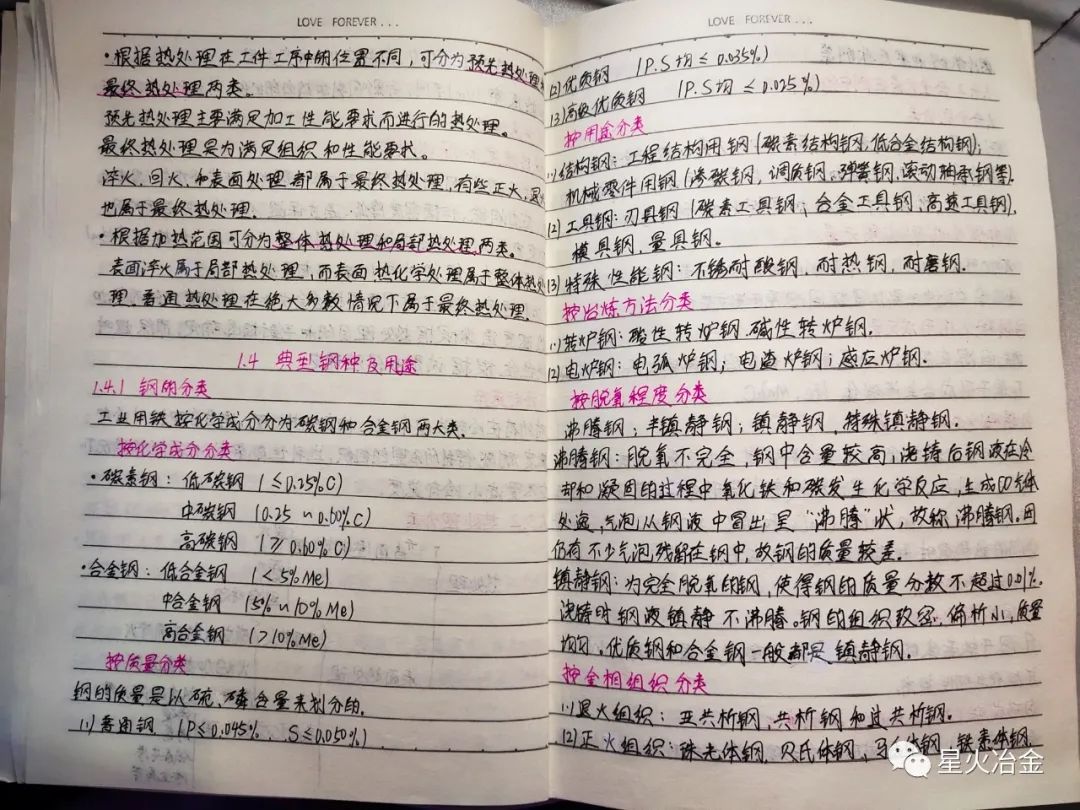 LOVE FOREVER...
·根据热处理在工件工序中的位置不同,可分为预先热处理和
最终热处理两类。
预先热处理主要满足加工性能要求而进行的热处理。
最终热处理是为满足组织和性能要求。
淬火、回火、和表面处理都属于最终热处理,有些正火、退火
也属于最终热处理。
·根据加热范围可分为整体热处理和局部热处理两类。
表面淬火属于局部热处理,而表面热化学处理属于整体热处
理,普通热处理在绝大多数情况下属于最终热处理。
1.4 典型钢种及用途
1.4.1 钢的分类
工业用铁按化学成分分为碳钢和合金钢两大类。
按化学成分分类
·碳素钢:低碳钢 (≤0.25%C)
中碳钢 (0.25~0.60%C)
高碳钢 (≥0.60%C)
·合金钢:低合金钢 (<5%Me)
中合金钢 (5%~10%Me)
高合金钢 (>10%Me)
按质量分类
钢的质量是以硫、磷含量来划分的。
(1)普通钢 (P≤0.045%、S≤0.050%)
LOVE FOREVER...
(2)优质钢 (P.S均≤0.035%)
(3)高级优质钢 (P.S均≤0.025%)
按用途分类
(1)结构钢:工程结构用钢(碳素结构钢,低合金结构钢);
机械零件用钢(渗碳钢,调质钢,弹簧钢,滚动轴承钢等).
(2)工具钢:刃具钢(碳素工具钢,合金工具钢,高速工具钢),
模具钢,量具钢。
(3)特殊性能钢:不锈耐酸钢,耐热钢,耐磨钢.
按冶炼方法分类
(1)转炉钢:酸性转炉钢.碱性转炉钢.
(2)电炉钢:电弧炉钢;电渣炉钢;感应炉钢.
按脱氧程度分类
沸腾钢;半镇静钢;镇静钢,特殊镇静钢.
沸腾钢:脱氧不完全,钢中含量较高,浇铸后钢液在冷
却和凝固的过程中氧化铁和碳发生化学反应,生成CO气体
处逸,气泡从钢液中冒出呈“沸腾”状,故称沸腾钢.因
仍有不少气泡残留在钢中,故钢的质量较差.
镇静钢:为完全脱氧的钢,使得钢的质量分数不超过0.01%.
浇铸时钢液镇静不沸腾。钢的组织致密,偏析小,质量
均匀.优质钢和合金钢一般都是镇静钢.
按金相组织分类
(1)退火组织:亚共析钢,共析钢和过共析钢.
(2)正火组织:珠光体钢,贝氏体钢,马氏体钢,铁素体钢
星火冶金